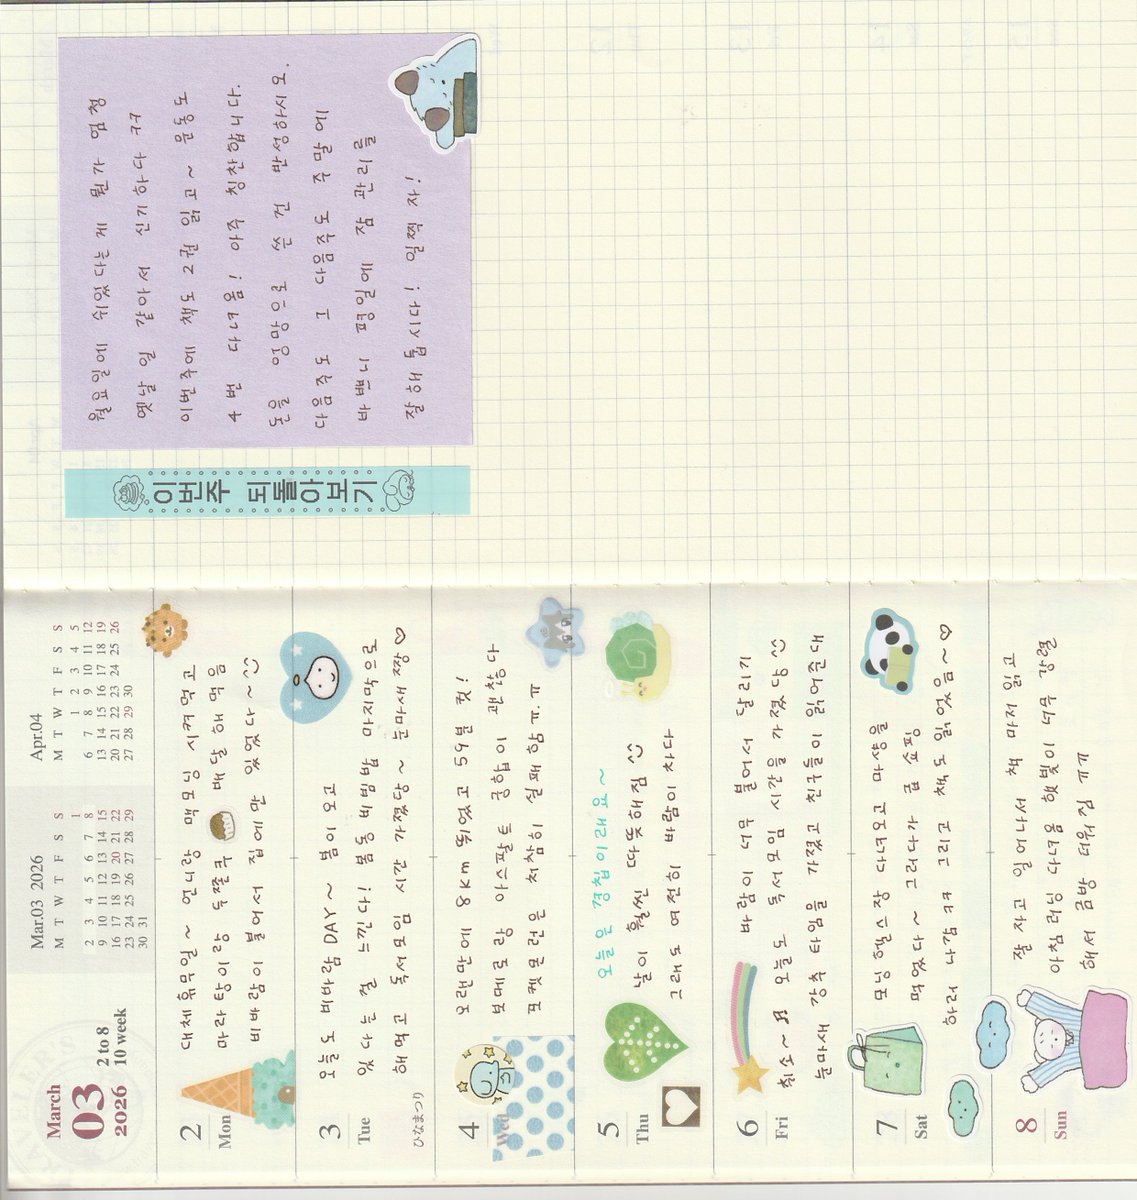 March
03
2026
2 to 8
10 week
Mar.03 2026
M T W T F S S
1
2 3 4 5 6 7 8
9 10 11 12 13 14 15
16 17 18 19 20 21 22
23 24 25 26 27 28 29
30 31
Apr.04
M T W T F S S
1 2 3 4 5
6 7 8 9 10 11 12
13 14 15 16 17 18 19
20 21 22 23 24 25 26
27 28 29 30
2
Mon
대체휴무일~ 언니랑 맥모닝 시켜먹고
마라탕이랑 두쫀쿠 배달 해먹음
비바람이 불어서 집에만 있었다~^^
3
Tue
ひなまつり
오늘도 비바람DAY~ 봄이 오고
있다는 걸 느낀다! 봄동 비빔밥 마지막으로
해먹고 독서모임 시간 가졌당~ 눈마새 짱♡
4
Wed
오랜만에 8km 뛰었고 59분 컷!
보메로랑 아스팔트 궁합이 괜찮다
포켓몬런은 처참히 실패함 ㅠ.ㅠ
5
Thu
오늘은 경칩이래요~
날이 훨씬 따뜻해짐 ^^
그래도 여전히 바람이 차다
6
Fri
바람이 너무 불어서 달리기
취소~ 오늘도 독서모임 시간을 가졌당 ^^
눈마새 강추 타임을 가졌고 친구들이 읽어준대
7
Sat
모닝 헬스장 다녀오고 마샹을
먹었다~ 그러다가 급 쇼핑
하러 나감 ㅋㅋ 그리고 책도 읽었음~♡
8
Sun
잘 자고 일어나서 책 마저 읽고
아침 러닝 다녀옴 햇빛이 너무 강렬
해서 금방 더워짐 ㅠㅠ
이번주 되돌아보기
월요일에 쉬었다는게 뭔가 엄청
옛날 일 같아서 신기하다 ㅋㅋ
이번주에 책도 2권 읽고~ 운동도
4번 다녀옴! 아주 칭찬합니다.
돈을 엉망으로 쓴 건 반성하시오.
다음주도 그 다음주도 주말에
바쁘니 평일에 잠 관리를
잘 해봅시다! 일찍 자!